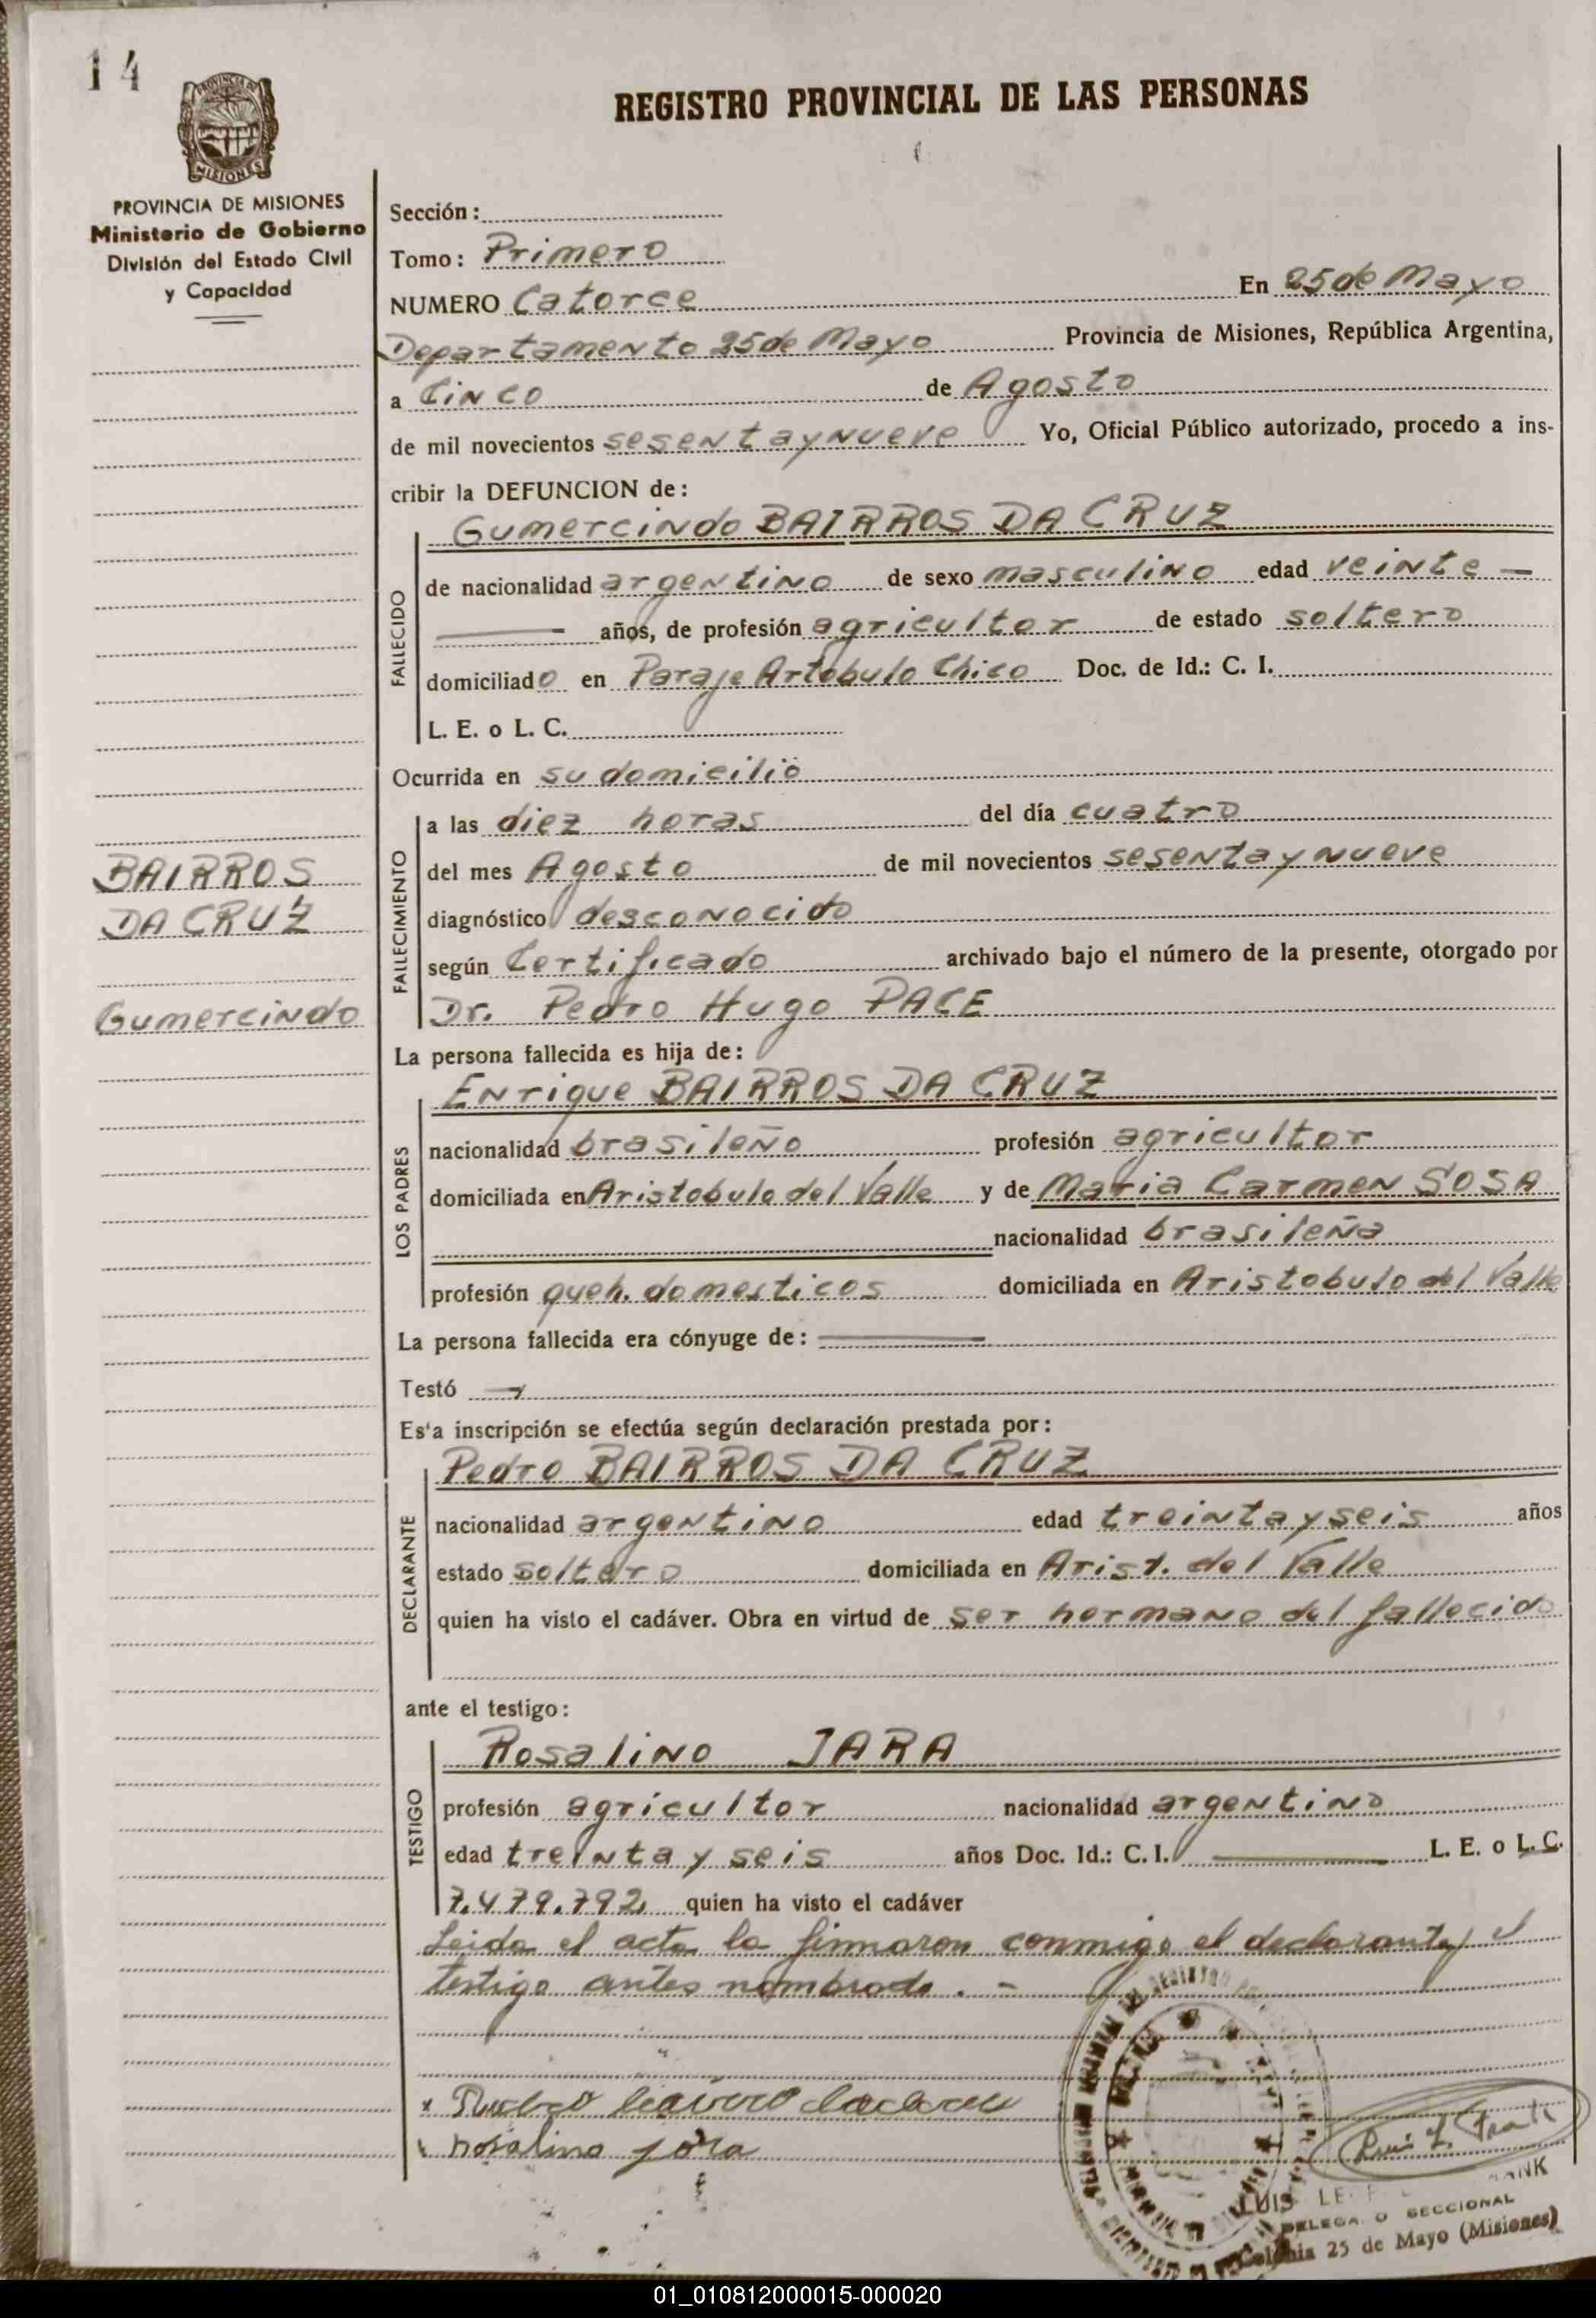 14
PROVINCIA DE
MISIONES
REGISTRO PROVINCIAL DE LAS PERSONAS
PROVINCIA DE MISIONES
Ministerio de Gobierno
División del Estado Civil
y Capacidad
Sección:
Tomo: Primero
NUMERO Catorce En 25 de Mayo
Departamento 25 de Mayo Provincia de Misiones, República Argentina,
a Cinco de Agosto
de mil novecientos sesenta y nueve Yo, Oficial Público autorizado, procedo a ins-
cribir la DEFUNCION de:
Gumercindo BAIRROS DA CRUZ
FALLECIDO
de nacionalidad argentino de sexo masculino edad veinte —
— años, de profesión agricultor de estado soltero
domiciliado en Paraje Artobulo Chico Doc. de Id.: C. I.
L. E. o L. C.
Ocurrida en su domicilio
FALLECIMIENTO
a las diez horas del día cuatro
del mes Agosto de mil novecientos sesenta y nueve
diagnóstico desconocido
según Certificado archivado bajo el número de la presente, otorgado por
Dr. Pedro Hugo PACE
BAIRROS
DA CRUZ
Gumercindo
La persona fallecida es hija de:
Enrique BAIRROS DA CRUZ
LOS PADRES
nacionalidad brasileño profesión agricultor
domiciliada en Aristobulo del Valle y de Maria Carmen SOSA
nacionalidad brasileña
profesión queh. domesticos domiciliada en Aristobulo del Valle
La persona fallecida era cónyuge de: —
Testó —
Es'a inscripción se efectúa según declaración prestada por:
Pedro BAIRROS DA CRUZ
DECLARANTE
nacionalidad argentino edad treinta y seis años
estado soltero domiciliada en Arist. del Valle
quien ha visto el cadáver. Obra en virtud de ser hermano del fallecido
ante el testigo:
Rosalino JARA
TESTIGO
profesión agricultor nacionalidad argentino
edad treinta y seis años Doc. Id.: C. I. — L. E. o L. C.
7.479.792 quien ha visto el cadáver
Leida el acta la firmaron conmigo el declarante y el
testigo antes nombrado. -
rosalino jara
LUIS
SECCIONAL
Colonia 25 de Mayo (Misiones)
01_010812000015-000020